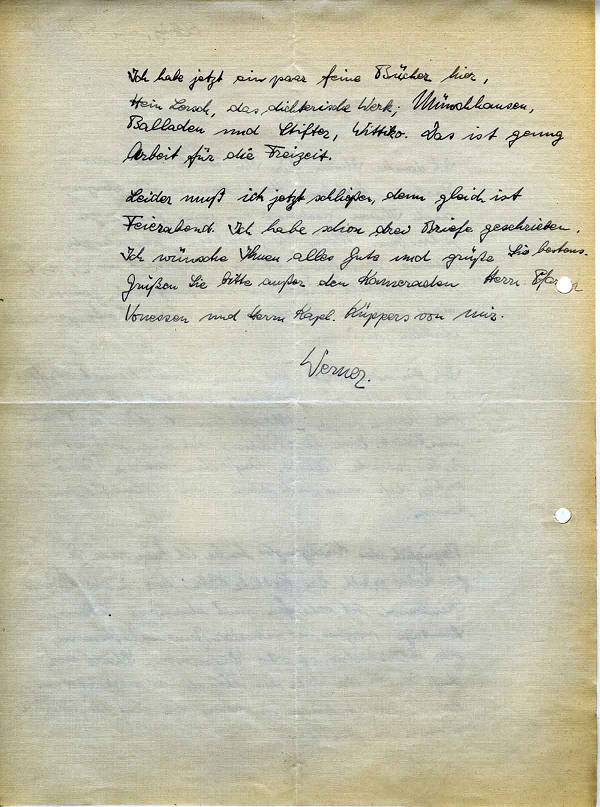 Ich habe jetzt ein paar feine Bücher hier,
Hein Lersch, das dichterische Werk; Münchhausen,
Balladen und Stifter, Wittiko. Das ist genug
Arbeit für die Freizeit.
Leider muß ich jetzt schließen, denn gleich ist
Feierabend. Ich habe schon drei Briefe geschrieben.
Ich wünsche Ihnen alles Gute und grüße Sie bestens.
Grüßen Sie bitte außer den Kameraden Herrn Pfarrer
Vonessen und Herrn Kapl. Küppers von mir.
Werner.